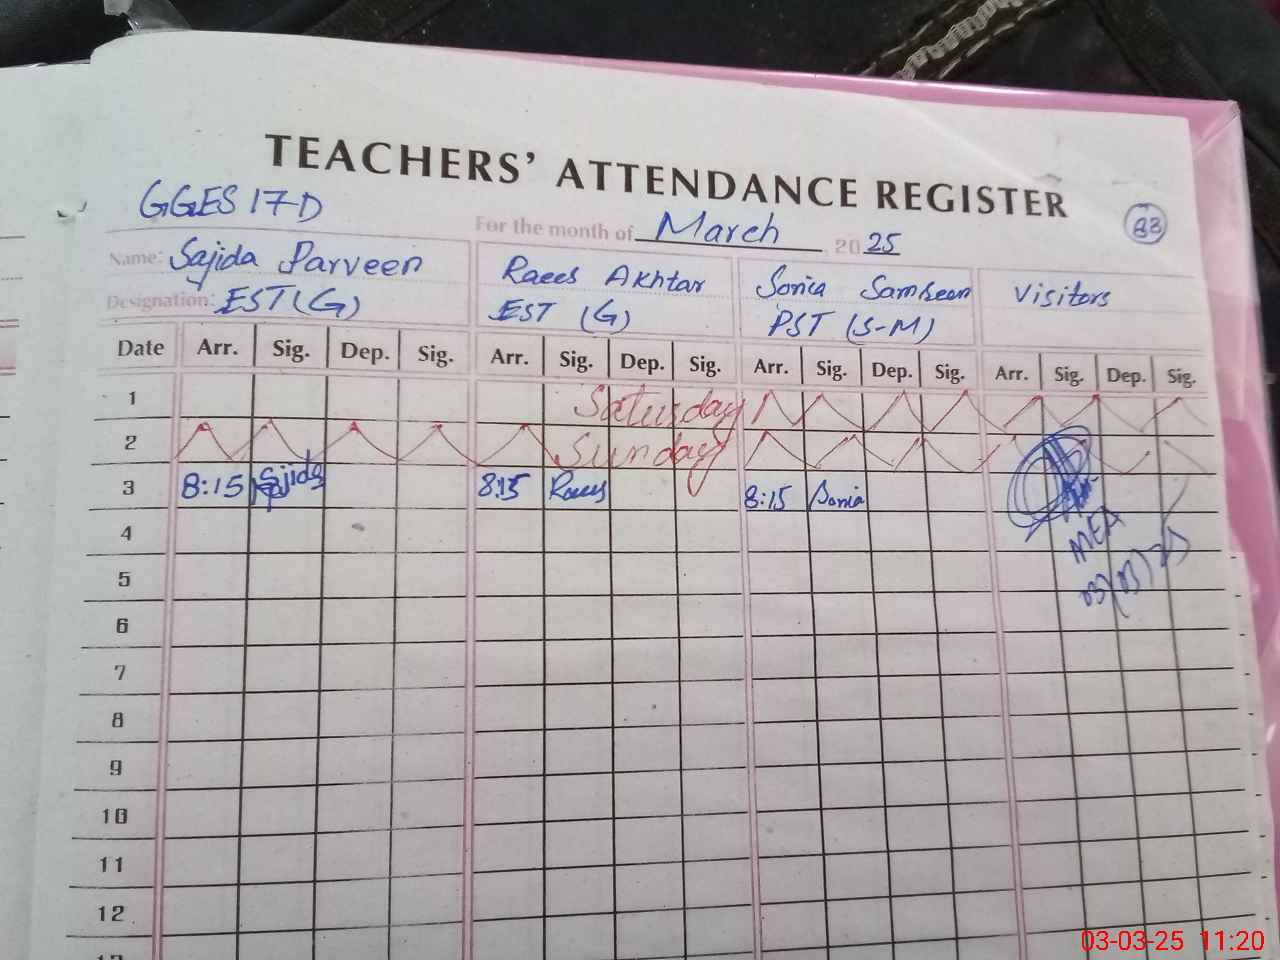 TEACHERS' ATTENDANCE REGISTER
GGES 17-D
For the month of March 2025
23
Name: Sajida Parveen Raees Akhtar Sonia Visitors
Designation: EST (G) EST (G) PST (S-M)
Date Arr. Sig. Dep. Sig. Arr. Sig. Dep. Sig. Arr. Sig. Dep. Sig. Arr. Sig. Dep. Sig.
1 Saturday
2 Sunday
3 8:15 Sajida 8:15 Raees 8:15 Sonia
4
MEA
5
03/03/25
6
7
8
9
10
11
12
03-03-25 11:20